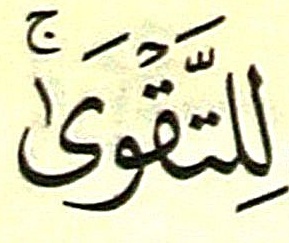 لِلتَّقْوَىٰ ۚ